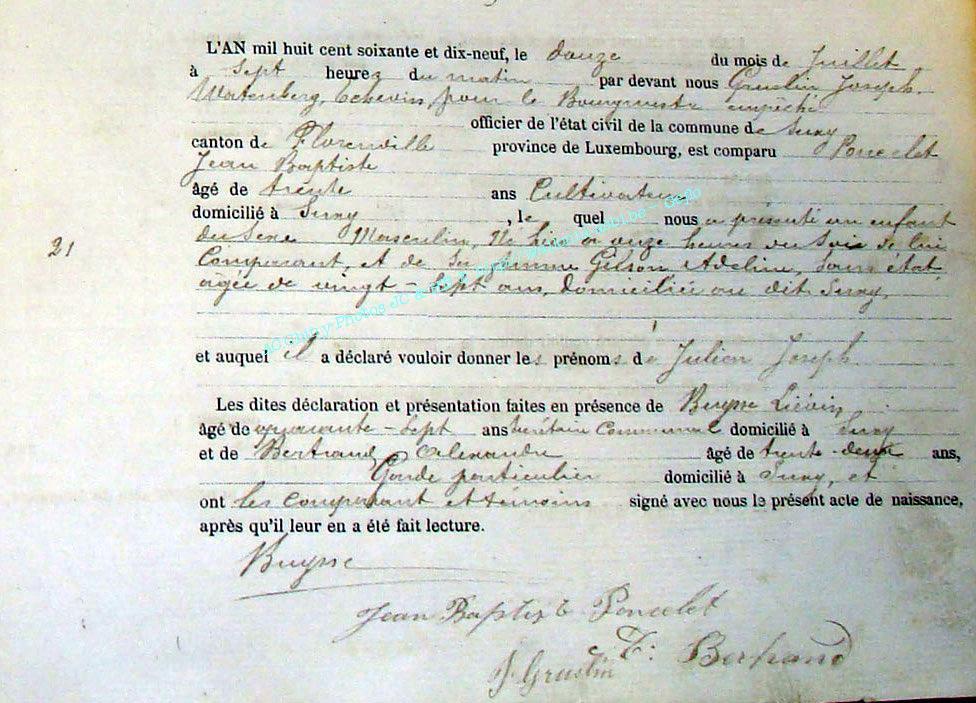 L'AN mil huit cent soixante et dix-neuf, le douze du mois de Juillet
à Sept heures du matin par devant nous Gruslin Joseph
Echevin, pour le Bourgmestre empêché
officier de l'état civil de la commune de Suxy
canton de Florenville province de Luxembourg, est comparu Poncelet
Jean Baptiste
âgé de trente ans Cultivateur
domicilié à Suxy , le quel nous a présenté un enfant
21 du Sexe Masculin, Né hier a onze heures du Soir de lui
Comparant, et de Sa femme Gilson Adeline, Sans état
agée de vingt-Sept ans, domiciliée au dit Suxy,
et auquel il a déclaré vouloir donner les prénoms de Julien Joseph
Les dites déclaration et présentation faites en présence de Buysse Liévin
âgé de quarante-Sept ans Secrétaire Communal domicilié à Suxy
et de Bertrand Alexandre âgé de trente-deux ans,
Garde particulier domicilié à Suxy, et
ont les comparant et témoins signé avec nous le présent acte de naissance,
après qu'il leur en a été fait lecture.
Buysse
Jean Baptiste Poncelet
J. Gruslin Bertrand